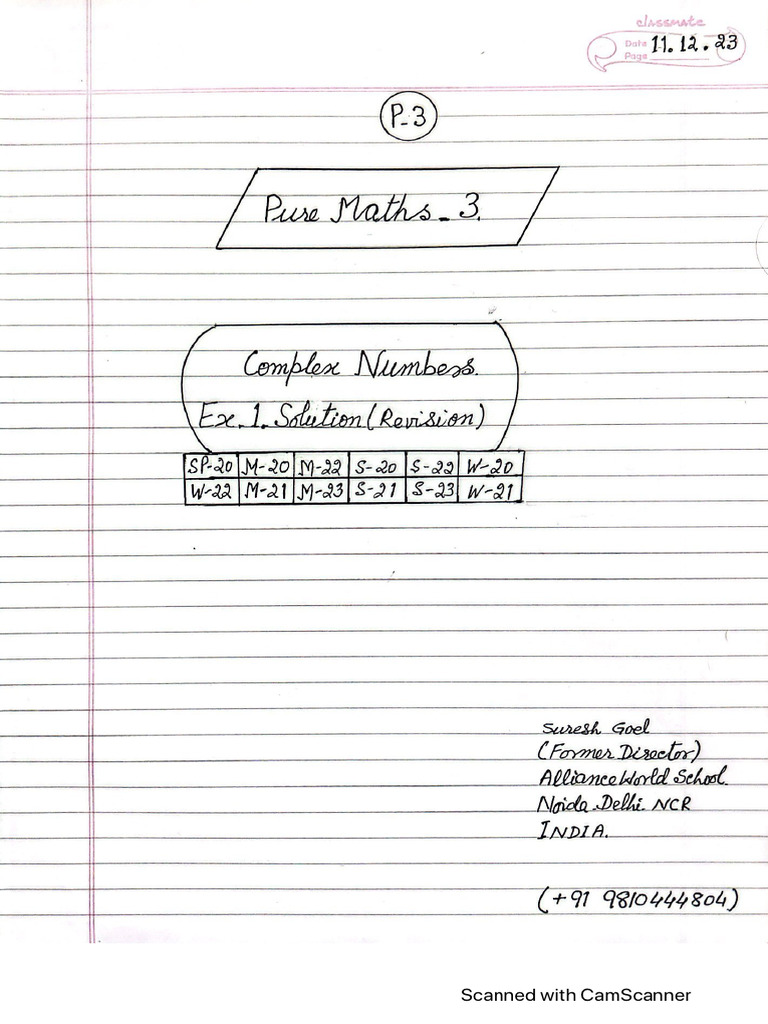 classmate
Date 11.12.23
Page
P-3
Pure Maths-3.
Complex Numbers.
Ex.1.Solution (Revision)
SP-20 M-20 M-22 S-20 S-22 W-20
W-22 M-21 M-23 S-21 S-23 W-21
Suresh Goel
(Former Director)
Alliance World School.
Noida Delhi NCR
INDIA.
(+91 9810444804)
Scanned with CamScanner